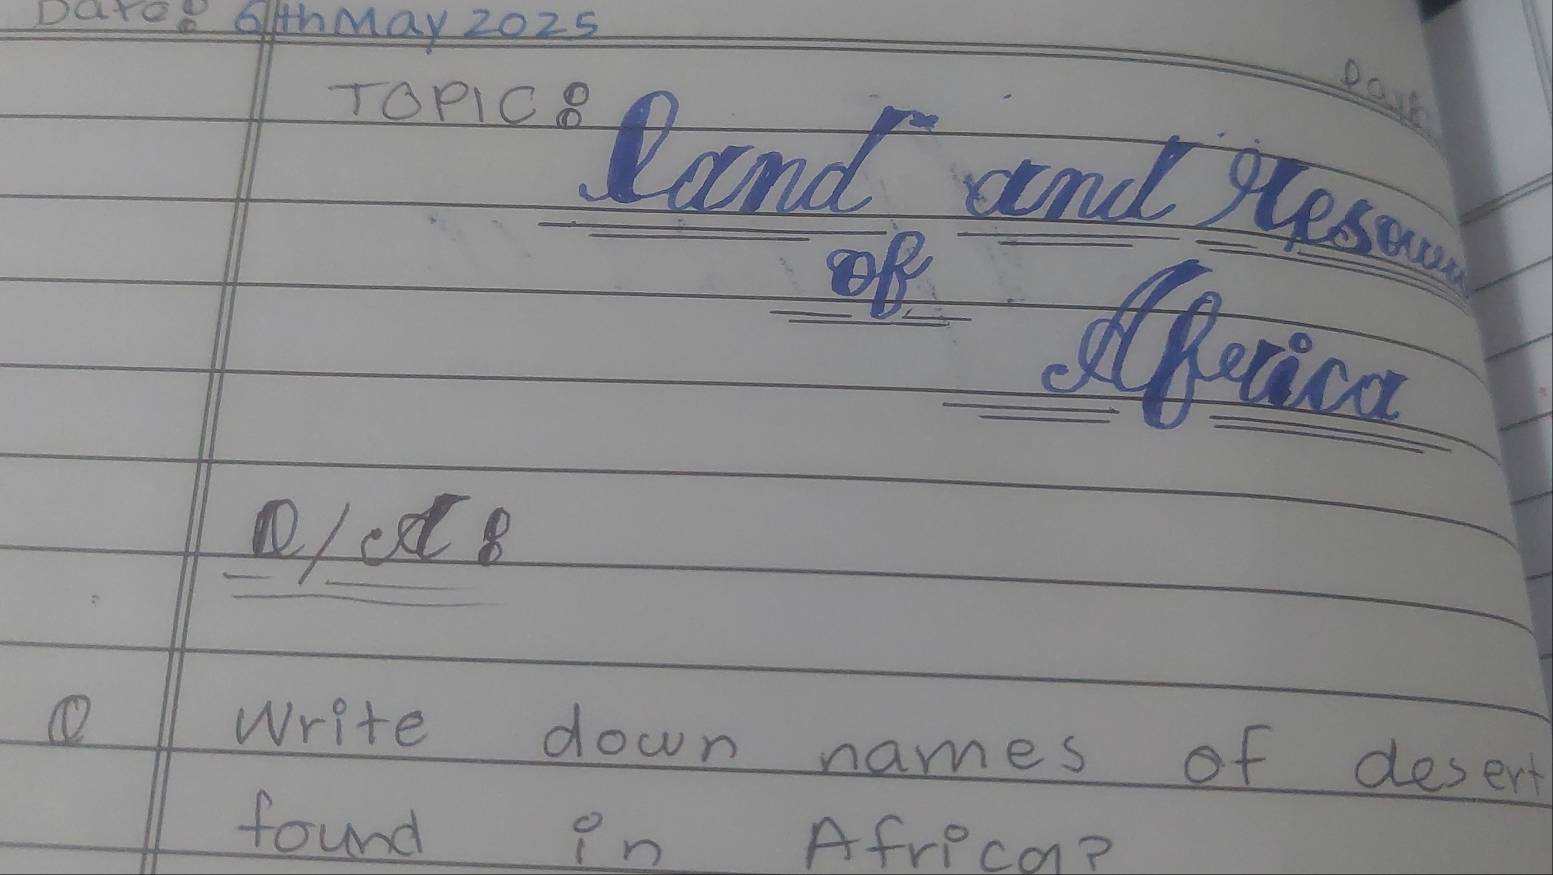 Date: 6th May 2025
Day:
TOPIC: Land and Resour
of
Africa
Q/A:
Q Write down names of desert
found in Africa?